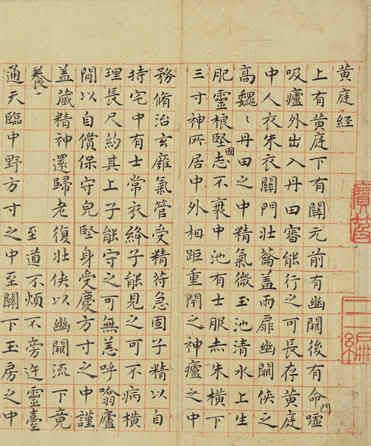 黃庭經
上有黃庭下有關元前有幽闕後有命噓
門
吸廬外出入丹田審能行之可長存黃庭
中人衣朱衣關門壯籥蓋兩扉幽闕俠之
高魏〻丹田之中精氣微玉池清水上生
肥靈根堅志不衰中池有士服赤朱橫下
固
三寸神所居中外相距重閉之神廬之中
務脩治玄廱氣管受精符急固子精以自
持宅中有士常衣絳子能見之可不病橫
理長尺約其上子能守之可無恙呼噏廬
間以自償保守皃堅身受慶方寸之中謹
蓋藏精神還歸老復壯俠以幽闕流下竟
至道不煩不旁迕靈臺
通天臨中野方寸之中至關下玉房之中
寶笈
三編